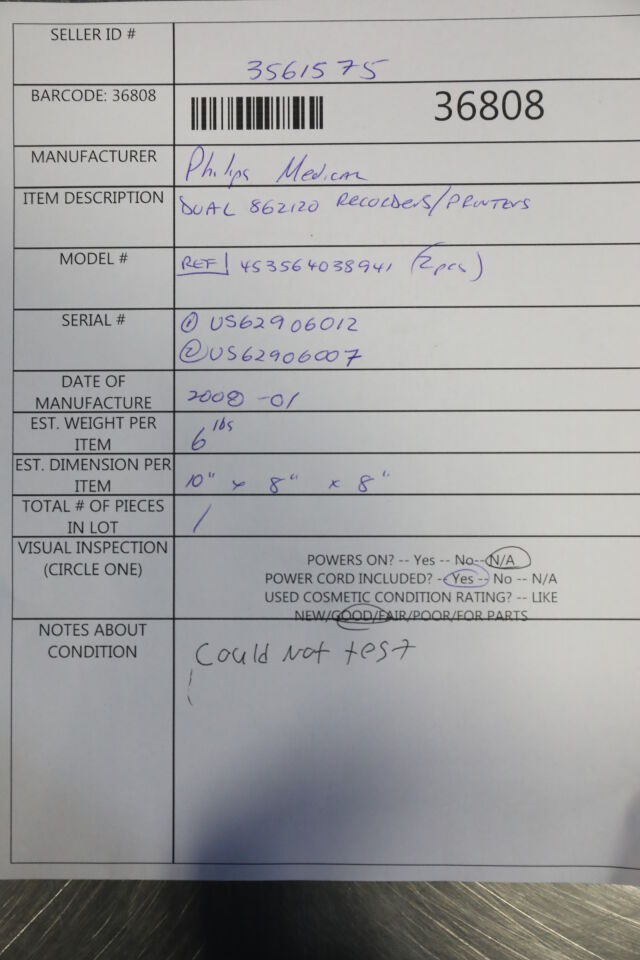 SELLER ID #
3561575
BARCODE: 36808
36808
MANUFACTURER
Philips Medical
ITEM DESCRIPTION
DUAL 862120 RECORDERS/PRINTERS
MODEL #
REF 453564038941 (2pcs)
SERIAL #
① US62906012
② US62906007
DATE OF
MANUFACTURE
2008-01
EST. WEIGHT PER
ITEM
6 lbs
EST. DIMENSION PER
ITEM
10" x 8" x 8"
TOTAL # OF PIECES
IN LOT
1
VISUAL INSPECTION
(CIRCLE ONE)
POWERS ON? -- Yes -- No--N/A
POWER CORD INCLUDED? -- Yes -- No -- N/A
USED COSMETIC CONDITION RATING? -- LIKE
NEW/GOOD/FAIR/POOR/FOR PARTS
NOTES ABOUT
CONDITION
Could not test